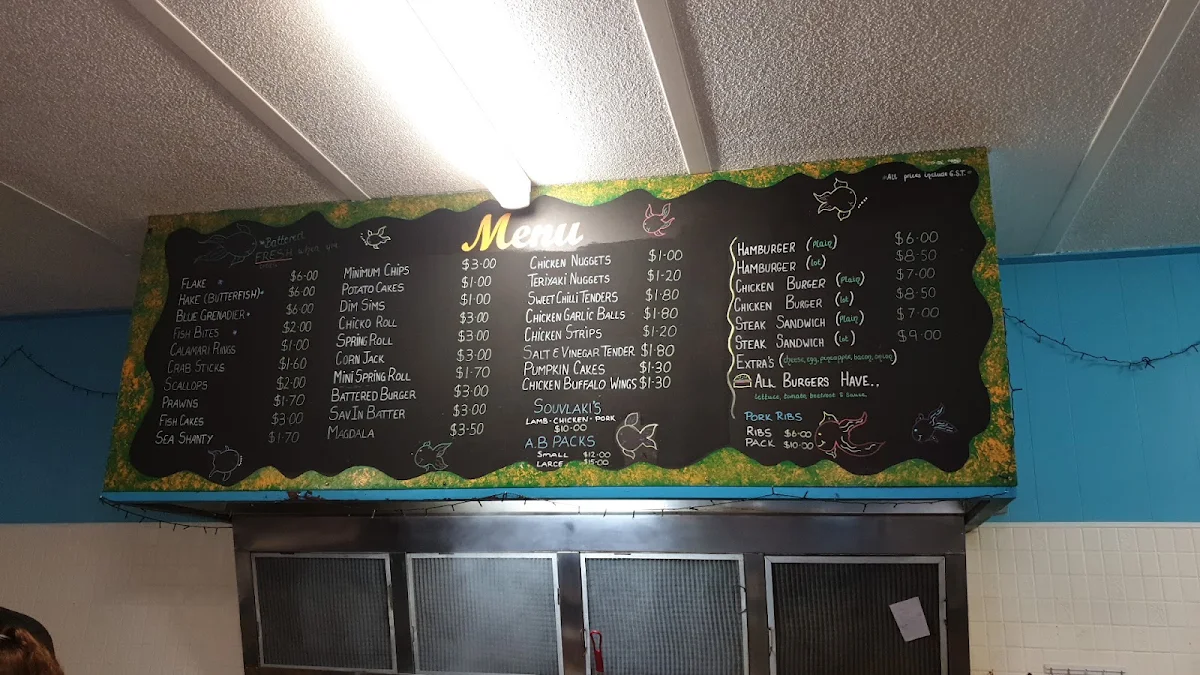 Menu
*All prices include G.S.T.*
*Battered
FRESH when you
FLAKE * $6.00
HAKE (BUTTERFISH)* $6.00
BLUE GRENADIER* $6.00
FISH BITES * $2.00
CALAMARI RINGS $1.00
CRAB STICKS $1.60
SCALLOPS $2.00
PRAWNS $1.70
FISH CAKES $3.00
SEA SHANTY $1.70
MINIMUM CHIPS $3.00
POTATO CAKES $1.00
DIM SIMS $1.00
CHICKO ROLL $3.00
SPRING ROLL $3.00
CORN JACK $3.00
MINI SPRING ROLL $1.70
BATTERED BURGER $3.00
SAV IN BATTER $3.00
MAGDALA $3.50
CHICKEN NUGGETS $1.00
TERIYAKI NUGGETS $1.20
SWEET CHILLI TENDERS $1.80
CHICKEN GARLIC BALLS $1.80
CHICKEN STRIPS $1.20
SALT & VINEGAR TENDER $1.80
PUMPKIN CAKES $1.30
CHICKEN BUFFALO WINGS $1.30
SOUVLAKI'S
LAMB·CHICKEN·PORK
$10.00
A.B PACKS
SMALL $12.00
LARGE $15.00
HAMBURGER (plain) $6.00
HAMBURGER (lot) $8.50
CHICKEN BURGER (plain) $7.00
CHICKEN BURGER (lot) $8.50
STEAK SANDWICH (plain) $7.00
STEAK SANDWICH (lot) $9.00
EXTRA'S (cheese, egg, pineapple, bacon, onion)
ALL BURGERS HAVE..
lettuce, tomato, beetroot & sauce
PORK RIBS
RIBS $6.00
PACK $10.00